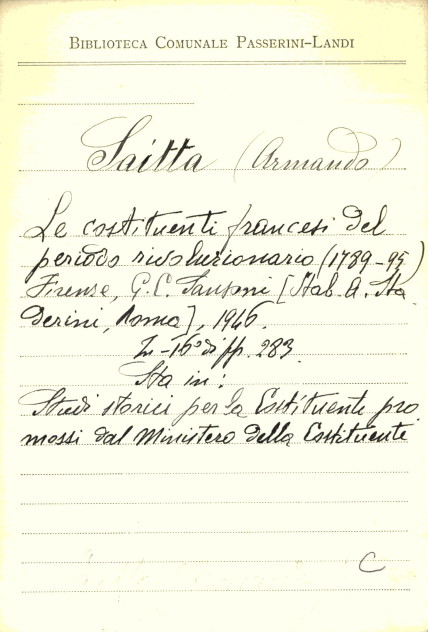 BIBLIOTECA COMUNALE PASSERINI-LANDI
Saitta (Armando)
Le costituenti francesi del
periodo rivoluzionario (1789-95)
Firenze, G.C. Sansoni [Stab. A. Sta
derini, Roma], 1946.
In-16° di pp. 283
Sta in:
Studi storici per la Costituente pro
mossi dal Ministero della Costituente
C